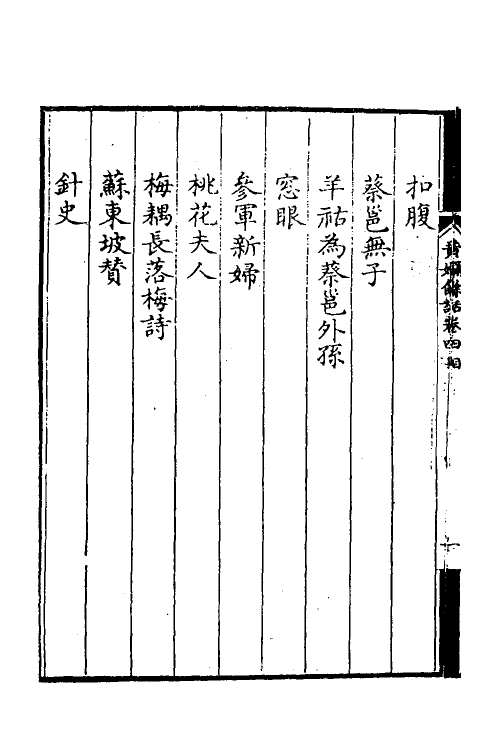 扣腹
蔡邕無子
羊祜為蔡邕外孫
窓眼
參軍新婦
桃花夫人
梅耦長落梅詩
蘇東坡贊
針史
卷四目